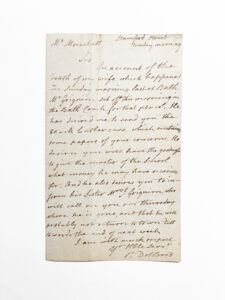 Stamford Street
Tuesday morning
Mr
Sir
On account of the
death of my wife which happened
on Sunday morning last at Bath
Mr Grignion set off this morning in
the Bath Coach for that place.
He has desired me to send you the
black leather case which contains
some papers of your concerns. He
desires you will have the goodness
to give the master of the School
what money he may have occasion
for. And he also desires you to in-
form his Sister Mrs Grignion she
will call on you on thursday
where he is gone and that he will
probably not return to town till
towards the end of next week
I am with much respect
Yr Hble Servt
P. Dollond